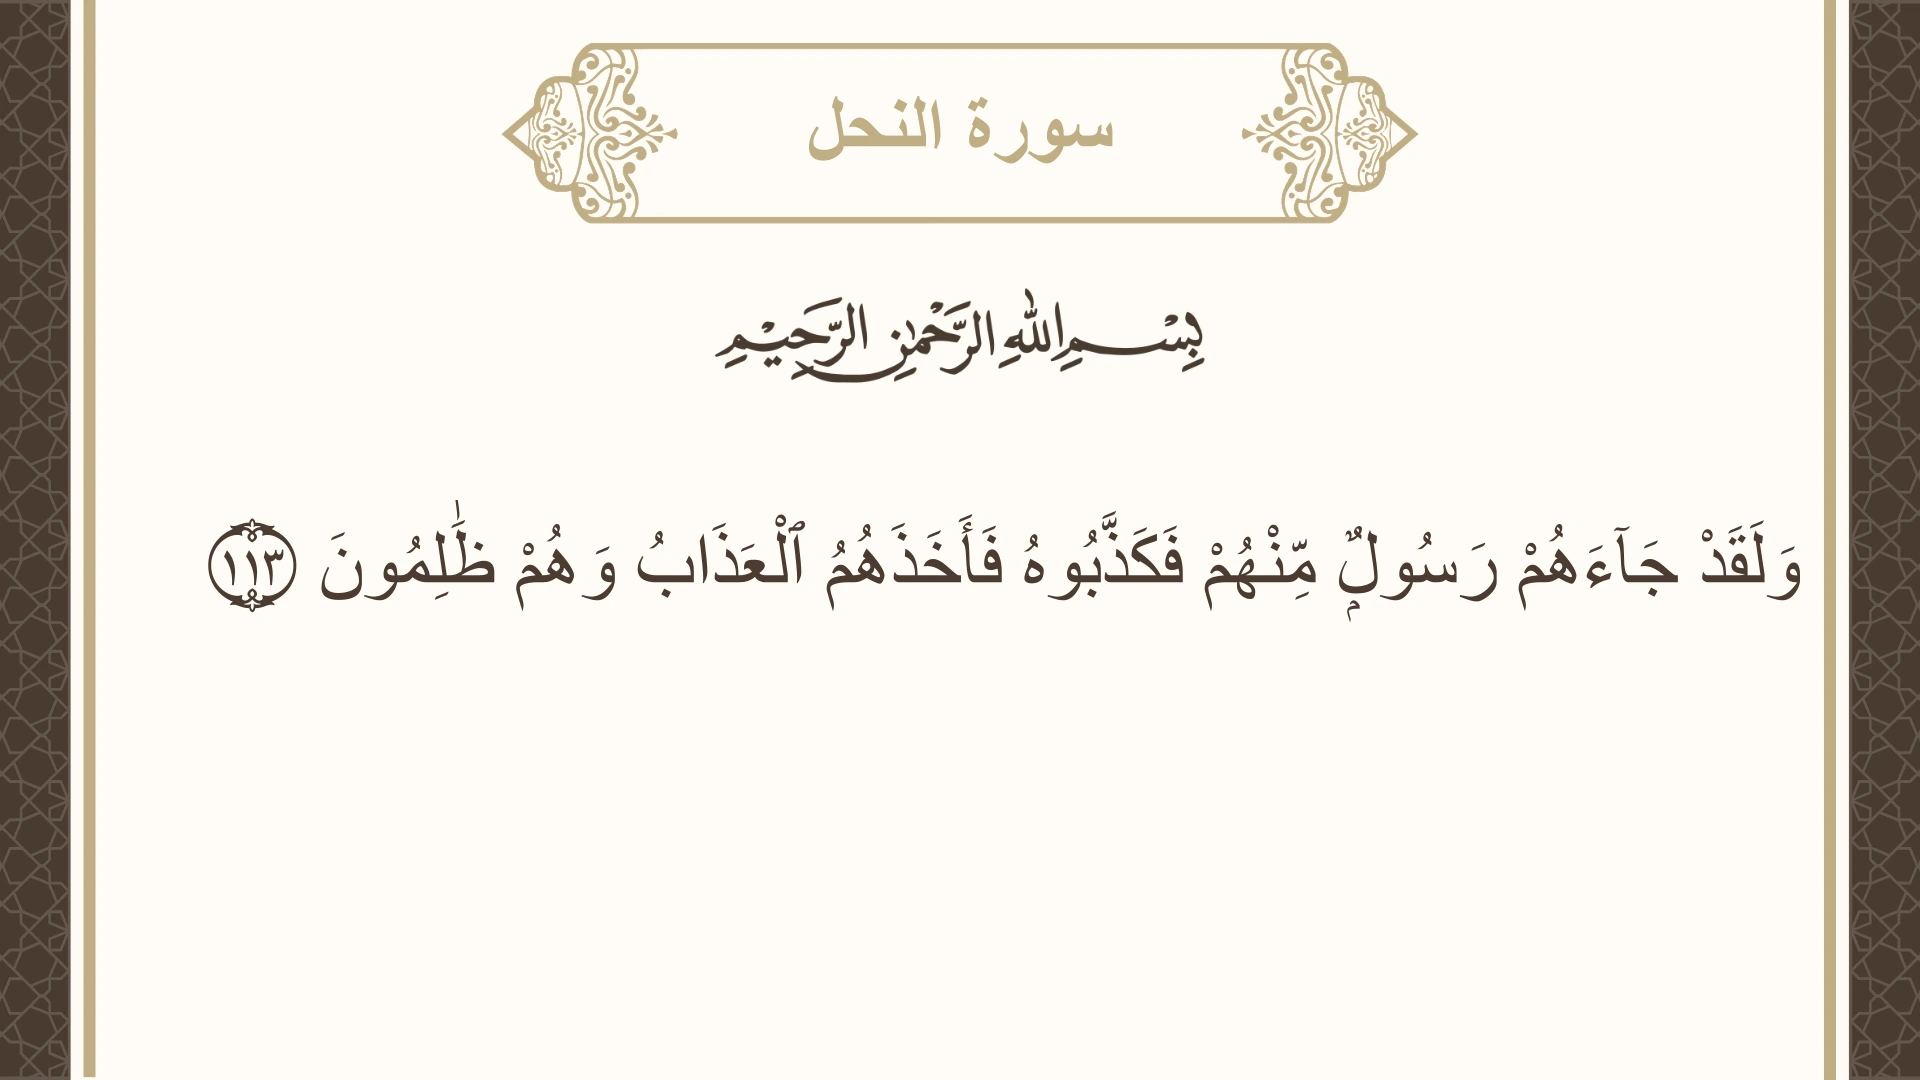 سورة النحل
بِسْمِ اللهِ الرَّحْمٰنِ الرَّحِيْمِ
وَلَقَدْ جَآءَهُمْ رَسُولٌۭ مِّنْهُمْ فَكَذَّبُوهُ فَأَخَذَهُمُ ٱلْعَذَابُ وَهُمْ ظَٰلِمُونَ ١١٣